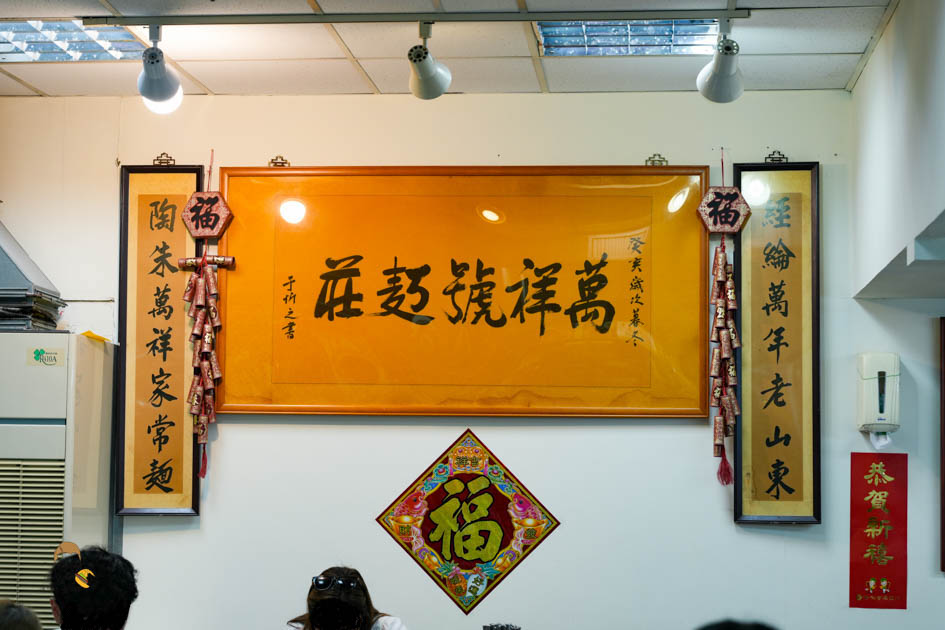 經綸萬年老山東
癸亥歲次暮冬
萬祥號麵莊
于忻之書
陶朱萬祥家常麵
福
福
福
恭賀新禧
RODA